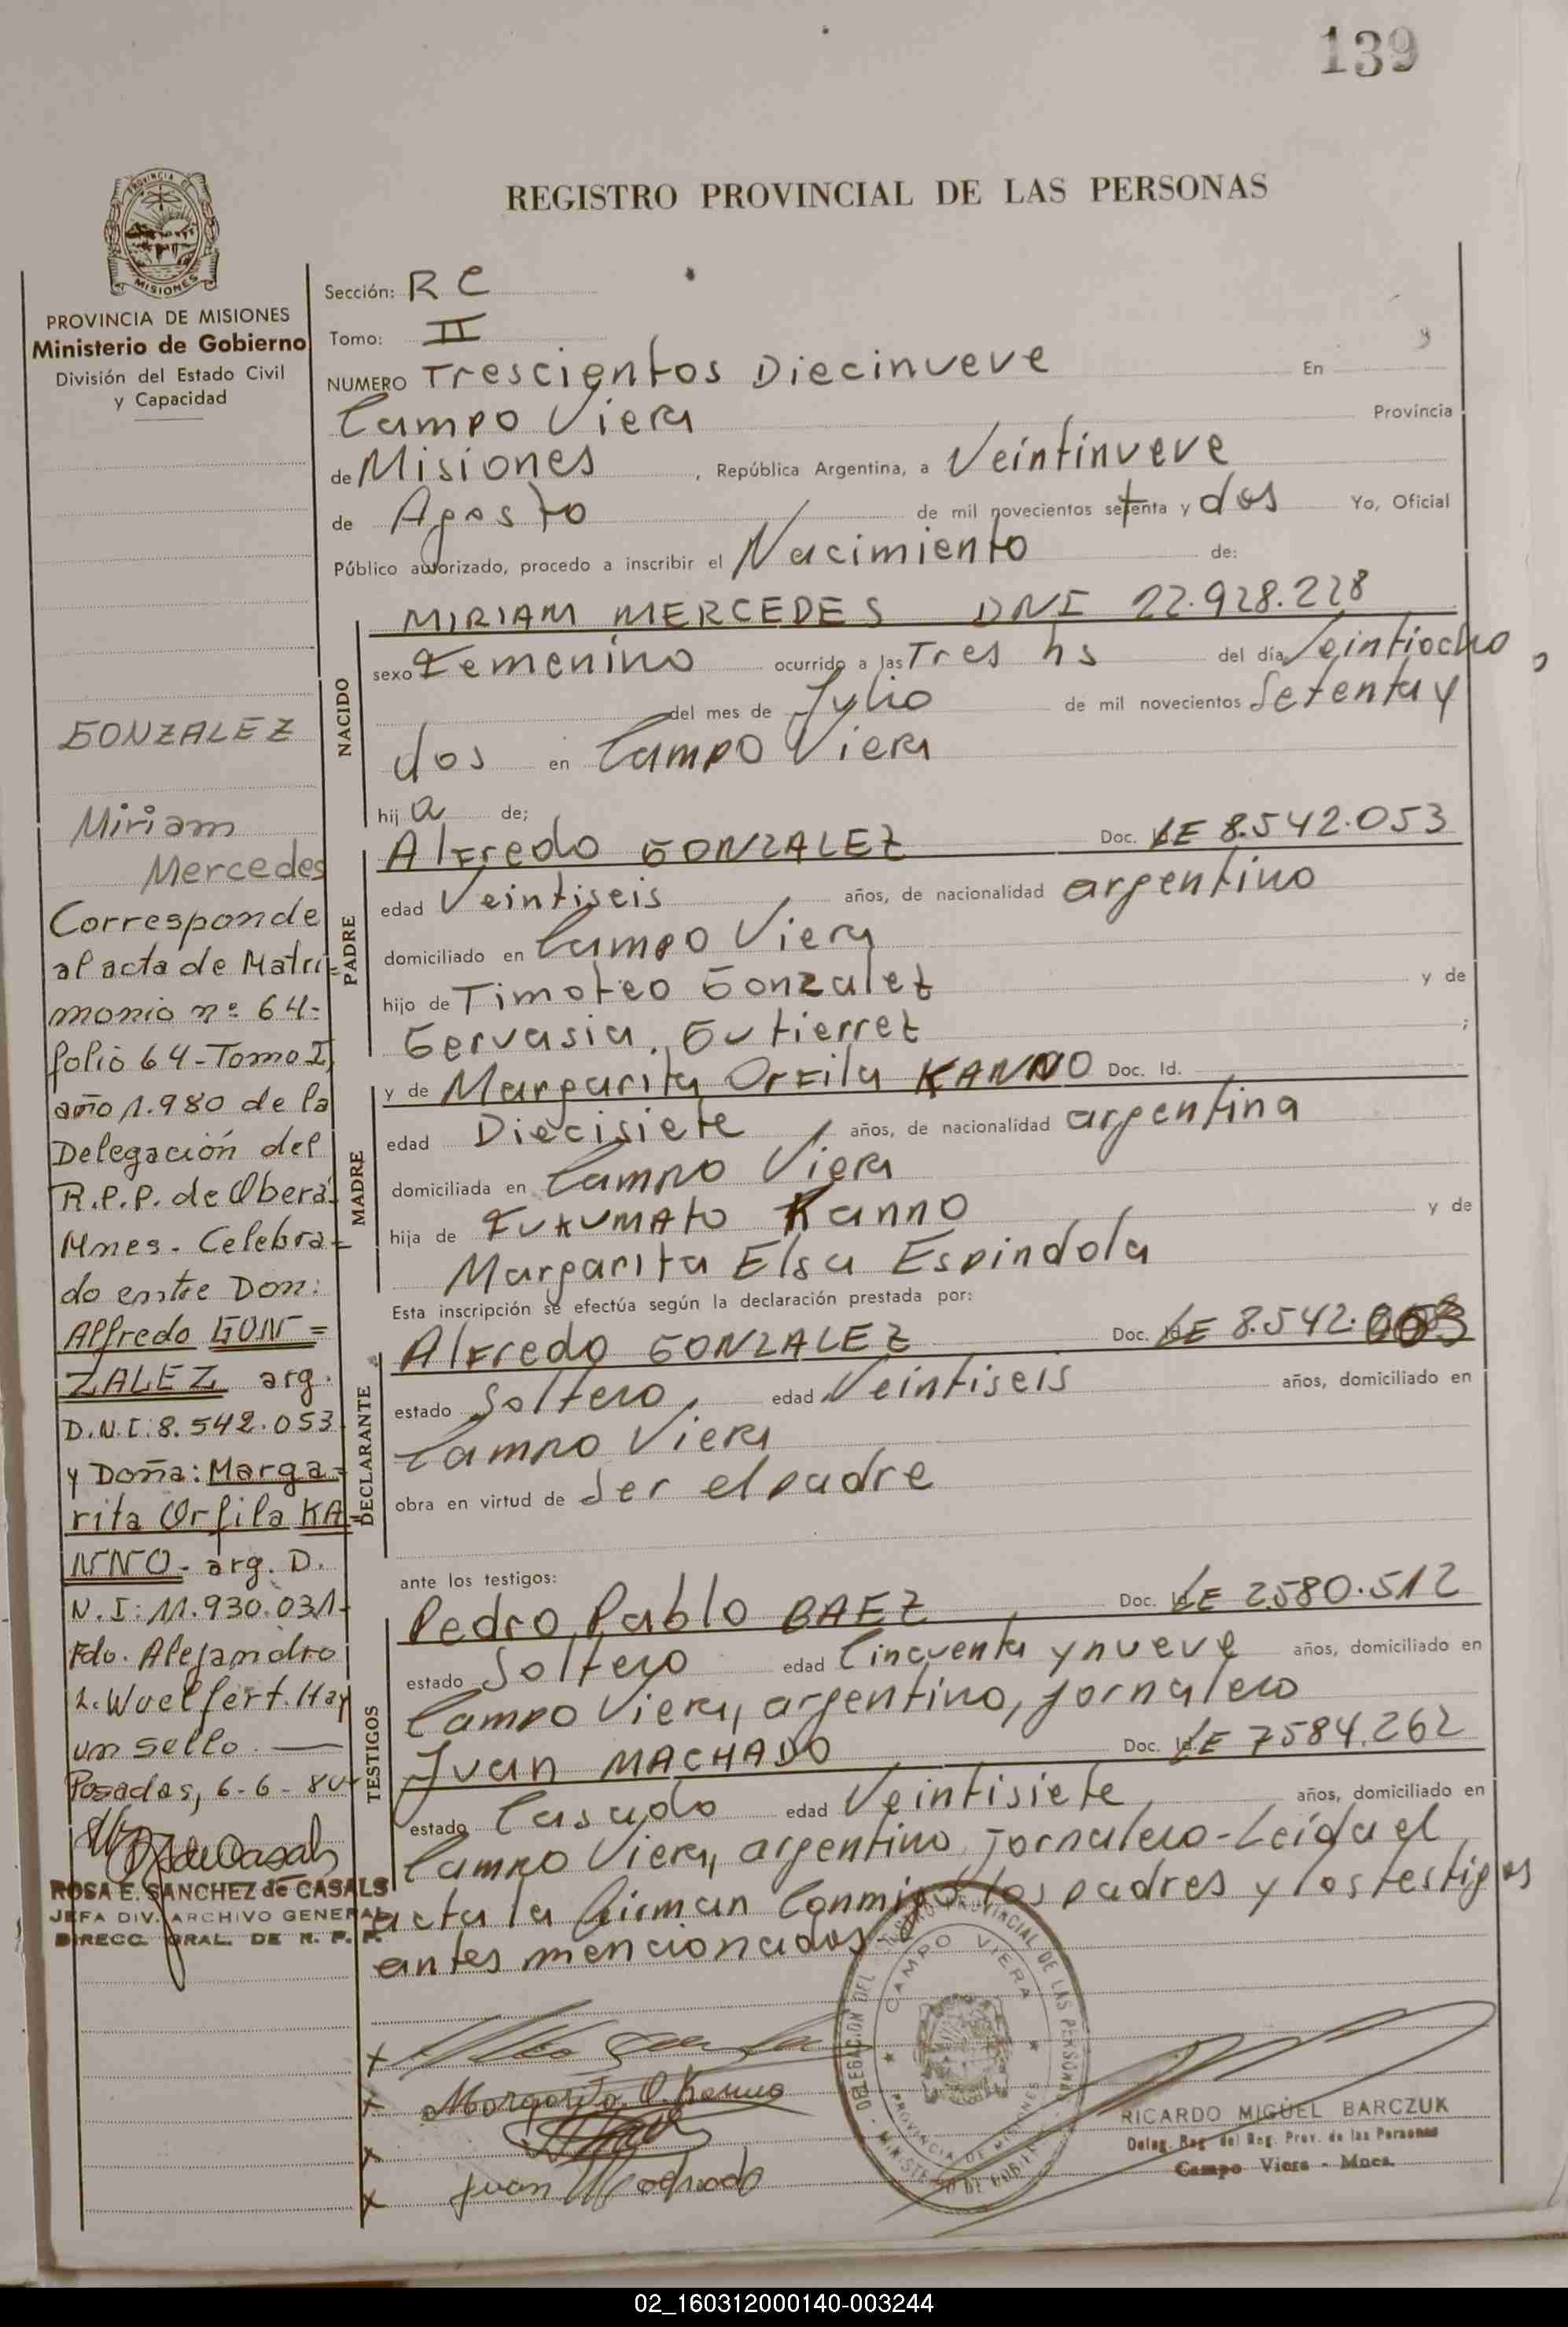 139
REGISTRO PROVINCIAL DE LAS PERSONAS
PROVINCIA DE MISIONES
PROVINCIA DE MISIONES
Ministerio de Gobierno
División del Estado Civil
y Capacidad
GONZALEZ
Miriam
Mercedes
Corresponde
al acta de Matri=
monio nº 64-
folio 64-Tomo I,
año 1.980 de la
Delegación del
R.P.P. de Oberá-
Mnes. Celebra-
do entre Don:
Alfredo GON=
ZALEZ arg.
D.N.I: 8.542.053
y Doña: Marga=
rita Orfila KA=
NNO- arg. D.
N.I: 11.930.031-
Fdo. Alejandro
L. Woelfert. Hay
un sello.
Posadas, 6-6-80-
ROSA E. SANCHEZ de CASALS
JEFA DIV. ARCHIVO GENERAL
DIRECC. GRAL. DE R. P. P.
Sección: R C
Tomo: II
NUMERO Trescientos Diecinueve En
Campo Viera Provincia
de Misiones, República Argentina, a Veintinueve
de Agosto de mil novecientos setenta y dos Yo, Oficial
Público autorizado, procedo a inscribir el Nacimiento de:
NACIDO
MIRIAM MERCEDES DNI 22.928.228
sexo Femenino ocurrido a las Tres hs del día Veintiocho
del mes de Julio de mil novecientos Setenta y
dos en Campo Viera
hija de;
PADRE
Alfredo GONZALEZ Doc. LE 8.542.053
edad Veintiseis años, de nacionalidad argentino
domiciliado en Campo Viera
hijo de Timoteo Gonzalez y de
Gervasia Gutierrez ;
MADRE
y de Margarita Orfila KANNO Doc. Id.
edad Diecisiete años, de nacionalidad argentina
domiciliada en Campo Viera
hija de FUKUMATO Kanno y de
Margarita Elsa Espindola
Esta inscripción se efectúa según la declaración prestada por:
DECLARANTE
Alfredo GONZALEZ Doc. LE 8.542.053
estado Soltero, edad Veintiseis años, domiciliado en
Campo Viera
obra en virtud de Ser el padre
ante los testigos:
TESTIGOS
Pedro Pablo BAEZ Doc. LE 2580.512
estado Soltero edad Cincuenta y nueve años, domiciliado en
Campo Viera, argentino, jornalero
Juan MACHADO Doc. LE 7584.262
estado Casado edad Veintisiete años, domiciliado en
Campo Viera, argentino, jornalero-Leída el
acta la firman Conmigo los padres y los testigos
antes mencionados
x
x Margarita O. Kanno
x
x Juan Machado
DELEGACION DEL REGISTRO PROVINCIAL DE LAS PERSONAS
CAMPO VIERA
PROVINCIA DE MISIONES
MINISTERIO DE GOBIERNO
RICARDO MIGUEL BARCZUK
Deleg. Reg. del Reg. Prov. de las Personas
Campo Viera - Mnes.
02_160312000140-003244